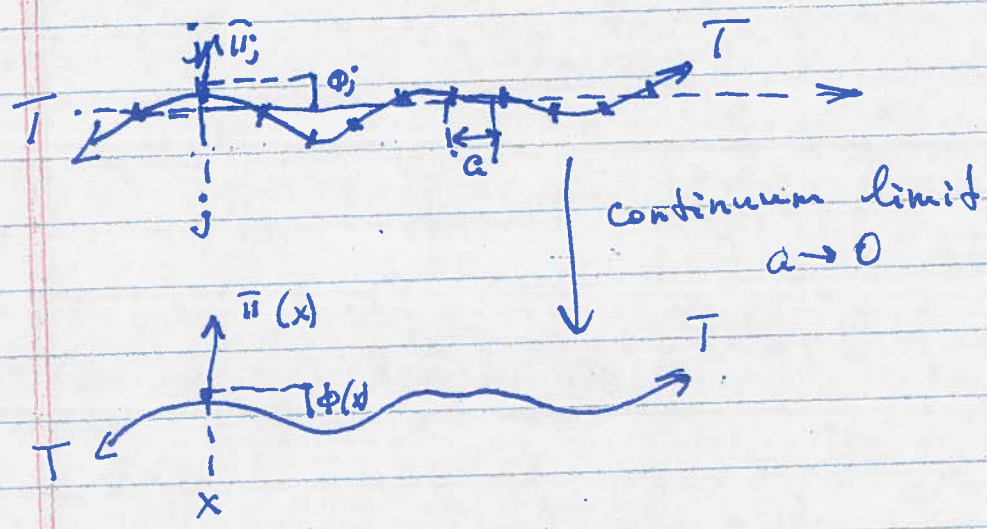 Π̂j
ϕj
T
T
a
j
continuum limit
a → 0
Π̂ (x)
T
ϕ(x)
T
x